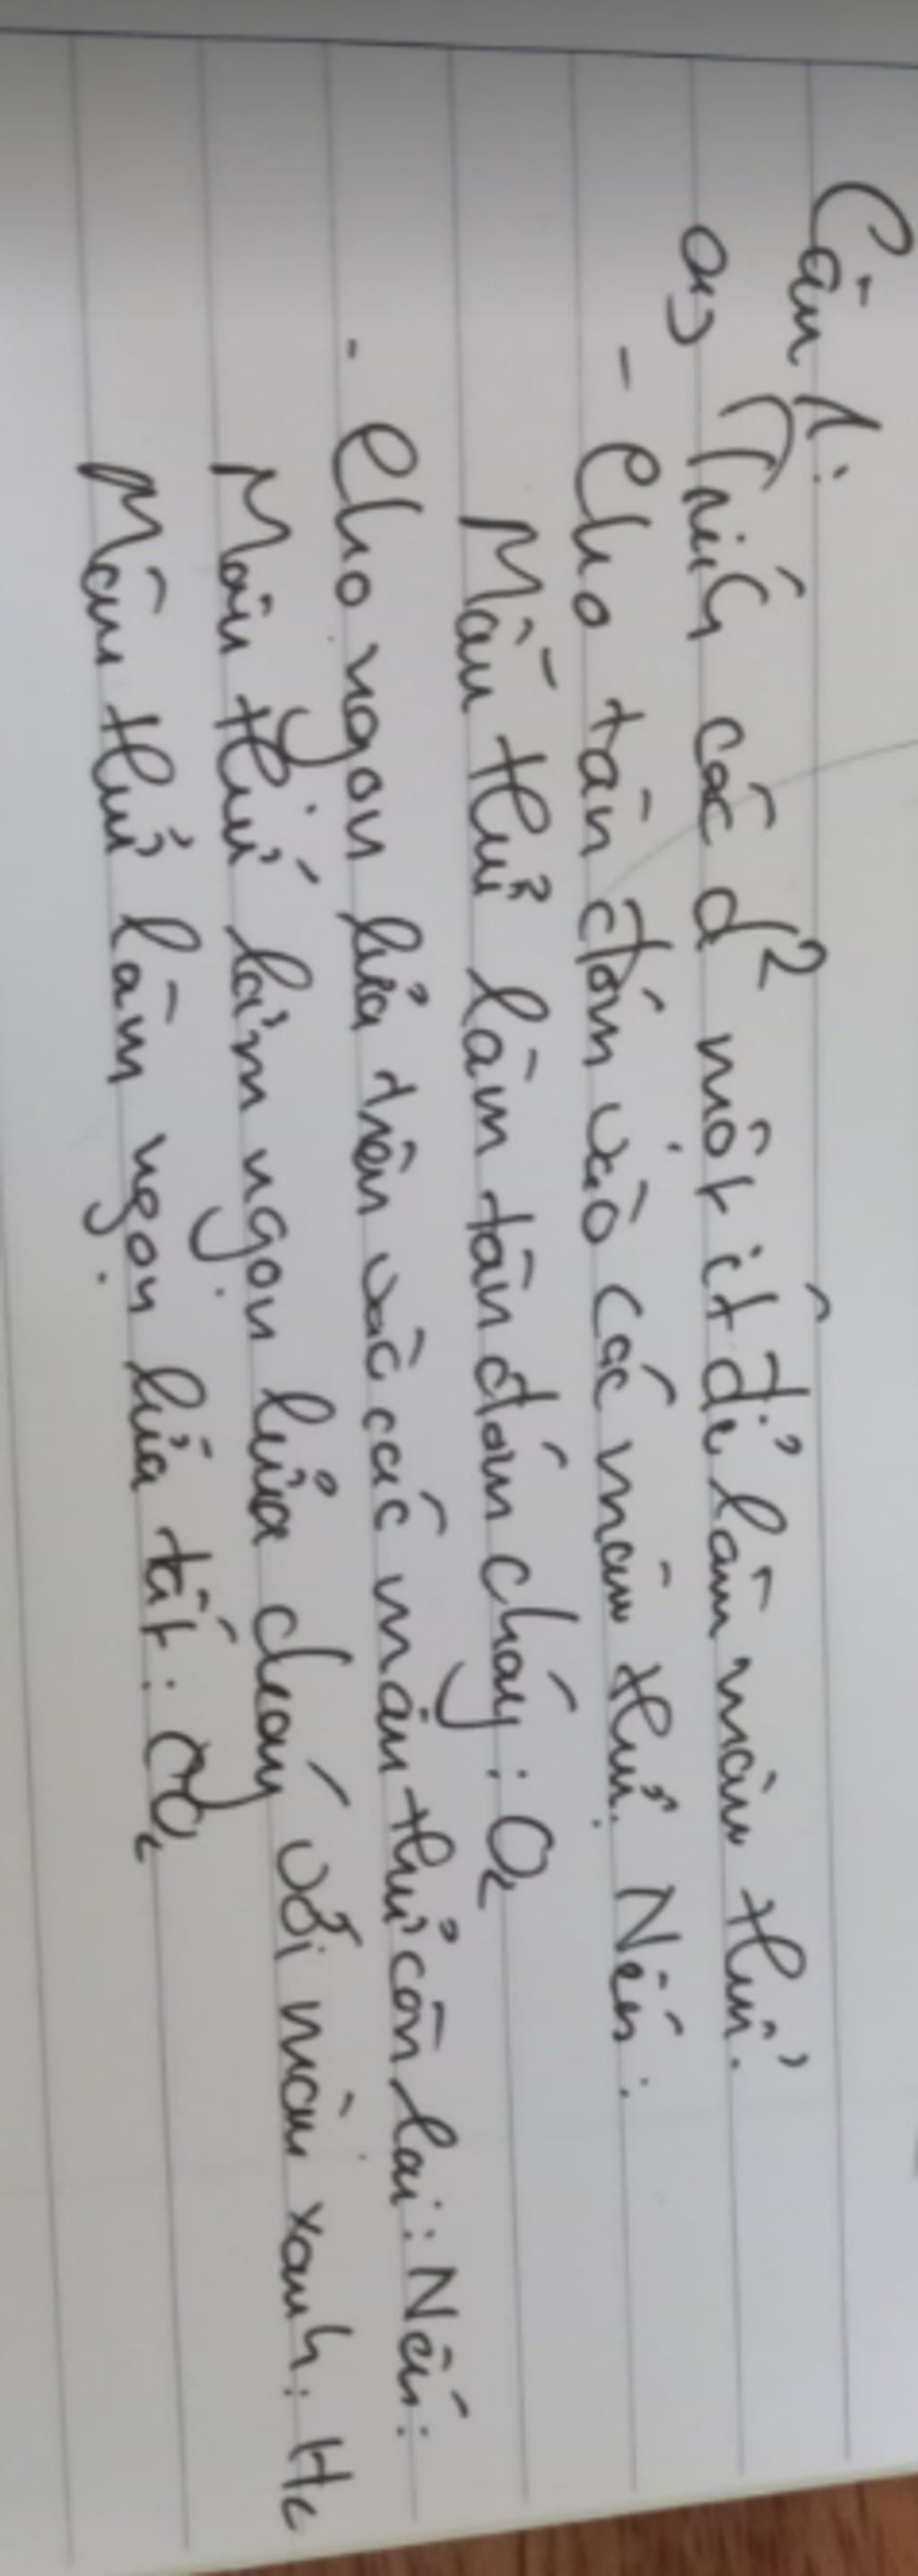 Câu 1:
a, Trích các d² một ít để làm mẫu thử.
- Cho tàn đóm vào các mẫu thử. Nếu:
Mẫu thử làm tàn đóm cháy: O₂
- Cho ngọn lửa trên vào các mẫu thử còn lại: Nếu:
Mẫu thử làm ngọn lửa cháy với màu xanh: H₂
Mẫu thử làm ngọn lửa tắt: CO₂